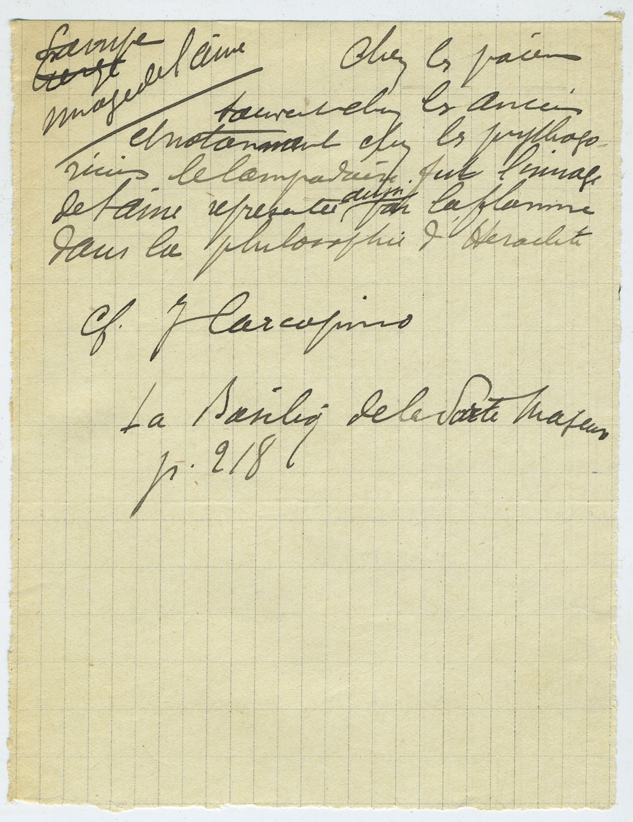 Lampe
image de l'âme
Chez les païens
souvent chez les anciens
et notamment chez les pythago-
riciens le lampadaire fut l'image
de l'âme représentée aussi par la flamme
dans la philosophie d'Héraclite
Cf. J Carcopino
La Basiliq de la Porte Majeure
p. 218